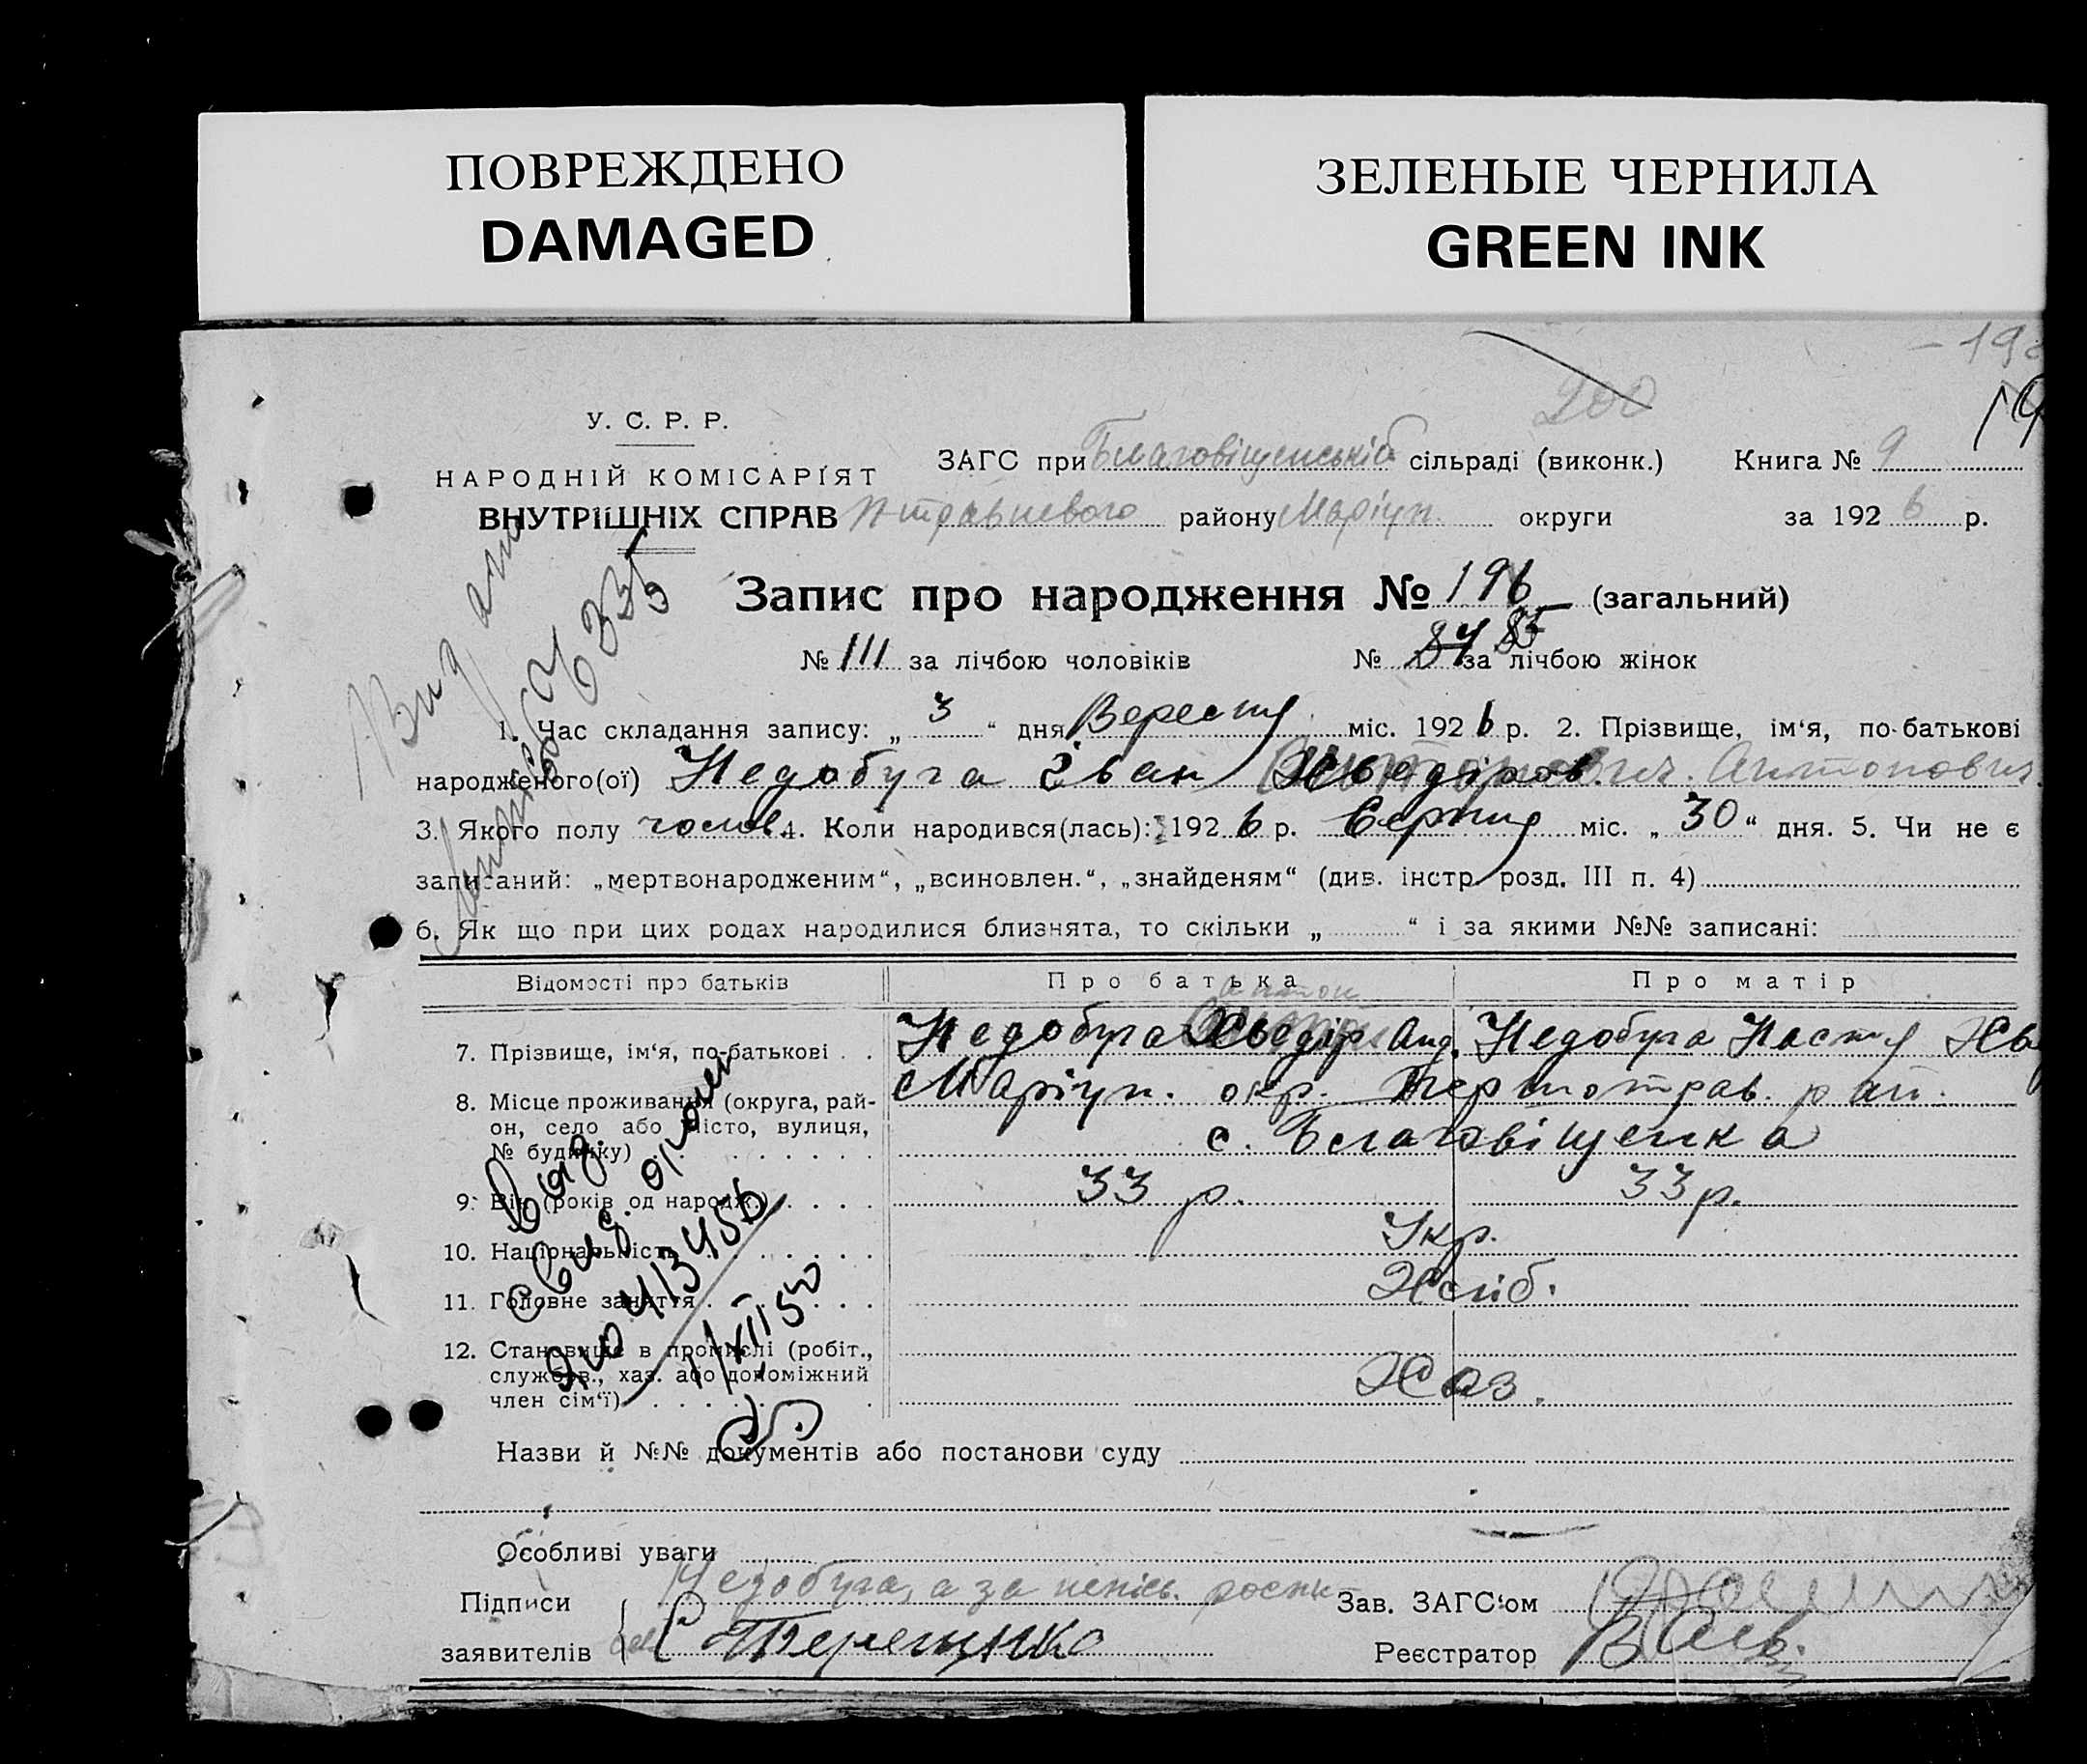 ПОВРЕЖДЕНО
DAMAGED
ЗЕЛЕНЫЕ ЧЕРНИЛА
GREEN INK
200
У. С. Р. Р.
НАРОДНІЙ КОМІСАРІЯТ
ВНУТРІШНІХ СПРАВ
ЗАГС при Благовіщенській сільраді (виконк.) Книга № 9
П-травневого району Маріуп. округи за 1926 р.
Запис про народження № 196 (загальний)
№ 111 за лічбою чоловіків № 84 85 за лічбою жінок
1. Час складання запису: „ 3 “ дня Вересня міс. 1926 р. 2. Прізвище, ім‘я, по-батькові
народженого(ої) Недобуга Іван Хведіров. Антонович
3. Якого полу чолов. 4. Коли народився(лась): 1926 р. Серпня міс. „ 30 “ дня. 5. Чи не є
записаний: „мертвонародженим“, „всиновлен.“, „знайденям“ (див. інстр. розд. III п. 4)
6. Як що при цих родах народилися близнята, то скільки „ “ і за якими №№ записані:
Відомості про батьків Про батька Про матір
Антон
7. Прізвище, ім‘я, по-батькові Недобуга Хведір Анд. Недобуга Настя Хв
8. Місце проживання (округа, рай- Маріуп. окр. Першотрав. рай.
он, село або місто, вулиця, с. Благовіщенка
№ будинку)
9. Вік (років од народж.) 33 р. 33 р.
10. Національність Укр.
11. Головне заняття Хліб.
12. Становище в промислі (робіт.,
службов., хаз. або допоміжний Хаз.
член сім‘ї)
Назви й №№ документів або постанови суду
Особливі уваги
Підписи Недобуга, а за непісь. роспи Зав. ЗАГС‘ом
заявителів Терещенко Реєстратор